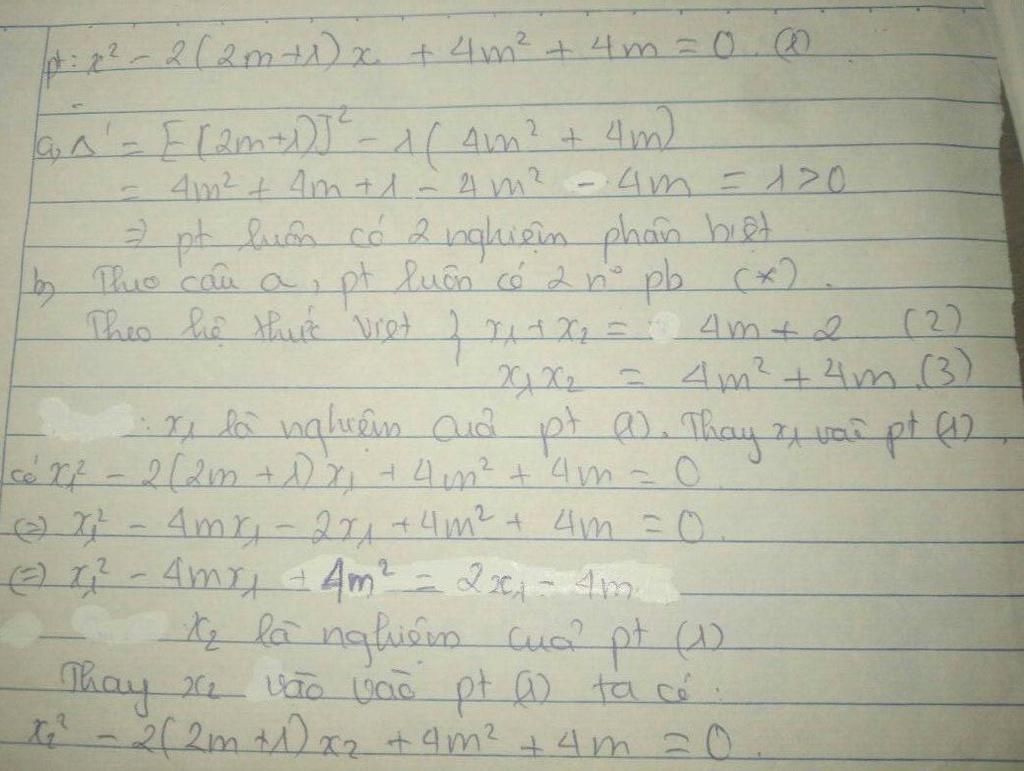 pt: x² - 2(2m+1)x + 4m² + 4m = 0. (1)
a, Δ' = [-(2m+1)]² - 1(4m² + 4m)
= 4m² + 4m + 1 - 4m² - 4m = 1 > 0
⇒ pt luôn có 2 nghiệm phân biệt
b, Theo câu a, pt luôn có 2 n° pb (*).
Theo hệ thức Viet } x₁ + x₂ = 4m + 2 (2)
x₁x₂ = 4m² + 4m (3)
: x₁ là nghiệm của pt (1). Thay x₁ vào pt (1)
có x₁² - 2(2m + 1)x₁ + 4m² + 4m = 0
(=) x₁² - 4mx₁ - 2x₁ + 4m² + 4m = 0.
(=) x₁² - 4mx₁ + 4m² = 2x₁ - 4m
x₂ là nghiệm của pt (1)
Thay x₂ vào vào pt (1) ta có:
x₂² - 2(2m + 1)x₂ + 4m² + 4m = 0.